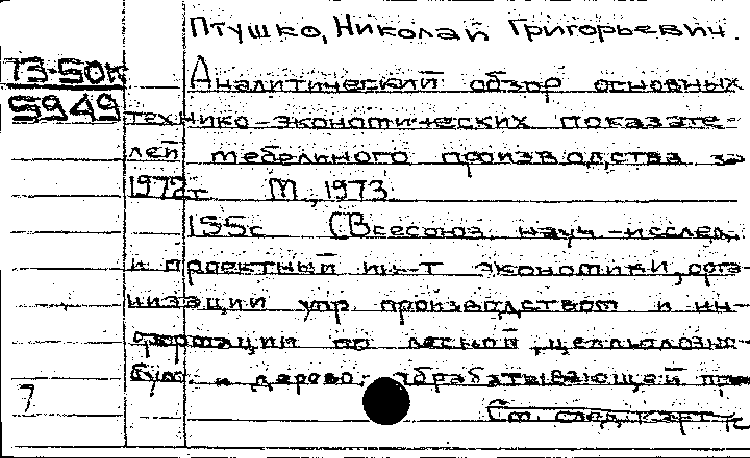 Птушко, Николай Григорьевич.
73-50к
Аналитический обзор основных
5949
технико-экономических показате-
лей мебельного производства за
1972г. М., 1973.
195с (Всесоюз. науч.-исслед.
и проектный ин-т экономики, орга-
низации упр. производством и ин-
формации по лесной, целлюлозно-
бум. и дерево обрабатывающей
7
См. след. карт.